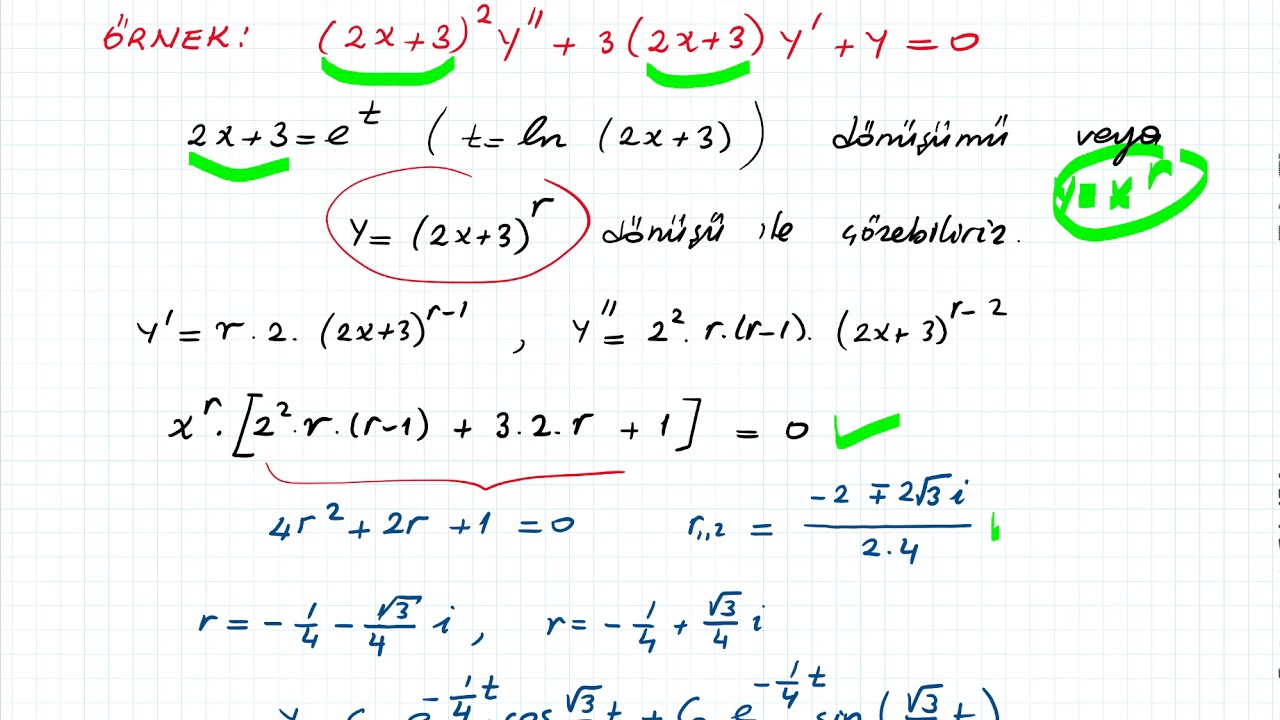 ÖRNEK: (2x+3)² y'' + 3(2x+3) y' + y = 0
2x+3 = e^t ( t = ln (2x+3) ) dönüşümü veya
y = x^r
y = (2x+3)^r dönüşü ile çözebiliriz.
y' = r.2.(2x+3)^{r-1} , y'' = 2².r.(r-1).(2x+3)^{r-2}
x^r.[2².r.(r-1) + 3.2.r + 1] = 0 ✓
4r² + 2r + 1 = 0 r₁,₂ = (-2 ∓ 2√3 i)/(2.4)
r = -1/4 - √3/4 i , r = -1/4 + √3/4 i